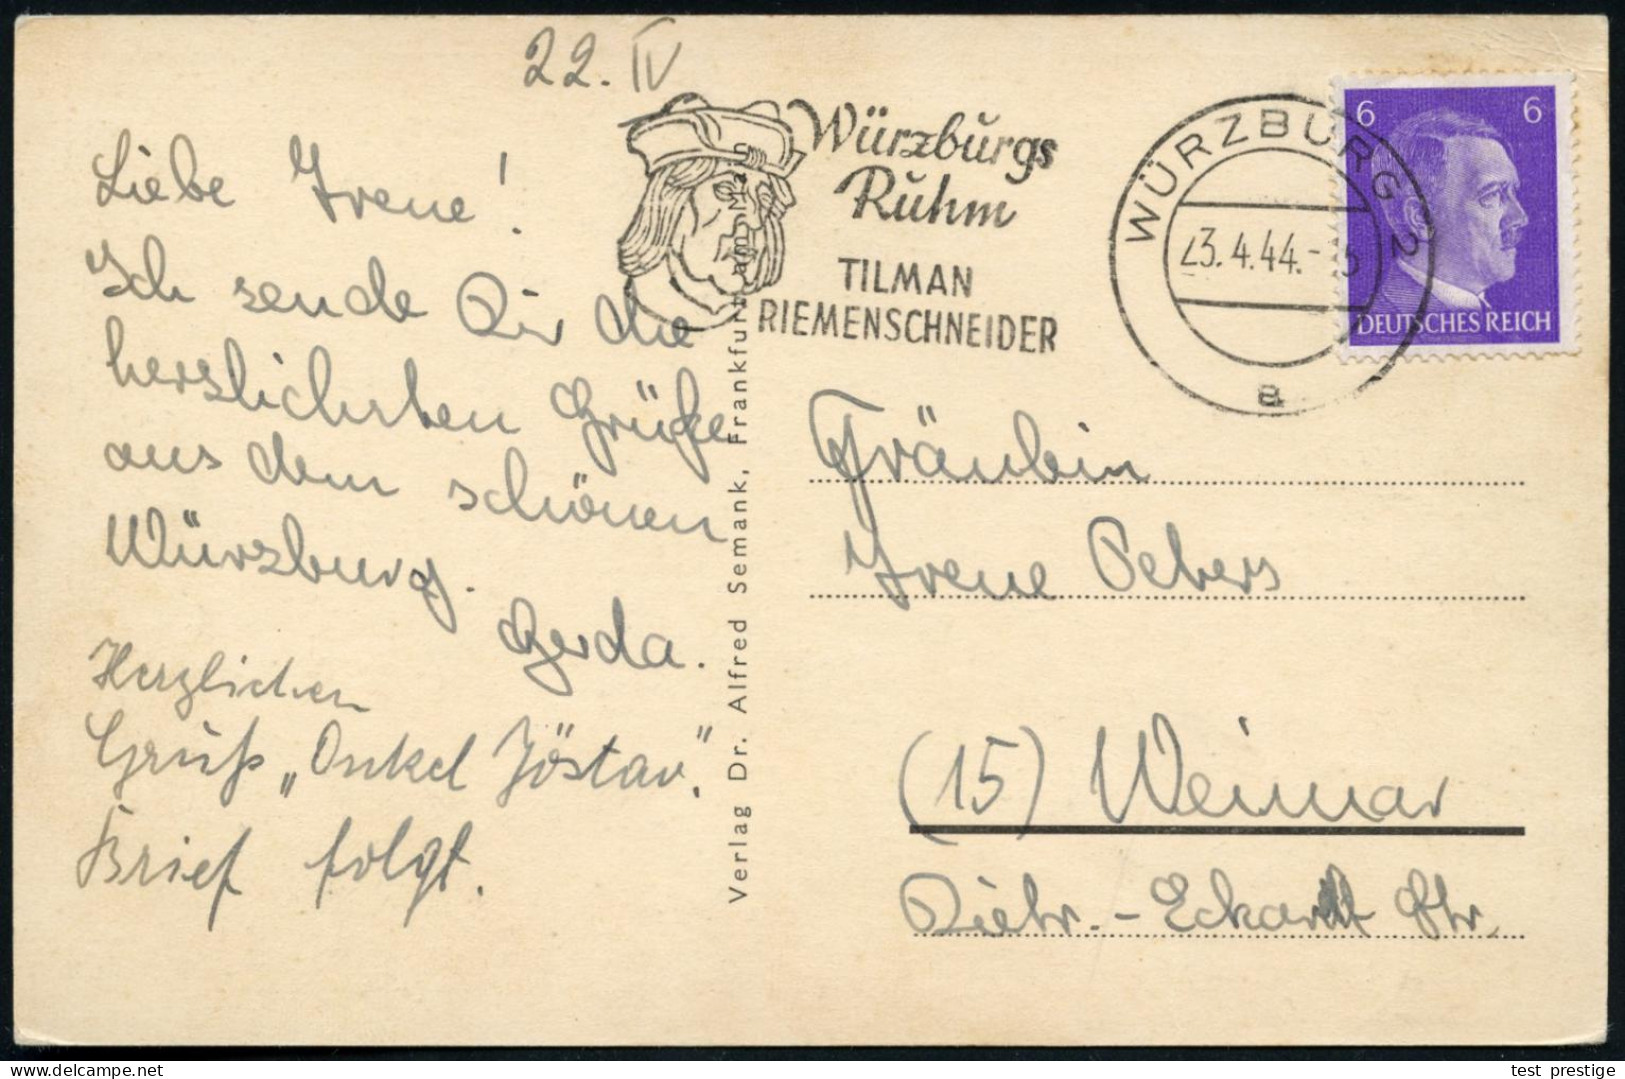 22. IV
Liebe Irene!
Ich sende Dir die
herzlichsten Grüße
aus dem schönen
Würzburg.
Gerda.
Herzlichen
Gruß „Onkel Jöstav."
Brief folgt.
Verlag Dr. Alfred Semank, Frankfurt am Main
Würzburgs
Ruhm
TILMAN
RIEMENSCHNEIDER
WÜRZBURG 2
23.4.44.-
a
6 6
DEUTSCHES REICH
Fräulein
Irene Peters
(15) Weimar
Dietr.-Eckart Str.
test prestige